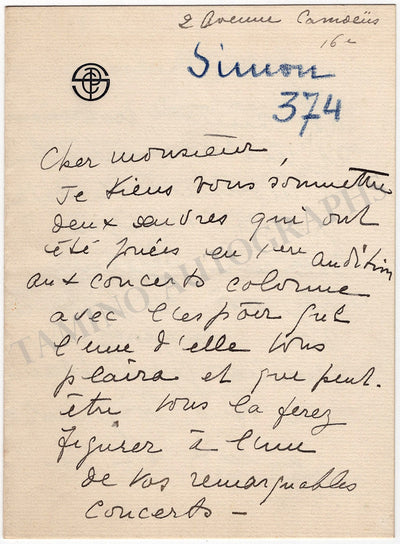 2 Avenue Camoëns
16e
Simon
374
Cher monsieur,
Je viens vous soumettre
deux œuvres qui ont
été jouées en 1ère audition
aux concerts colonne
avec l'espoir que
l'une d'elle vous
plaira et que peut-
être vous la ferez
figurer à l'une
de vos remarquables
concerts –
TAMINO AUTOGRAPHS